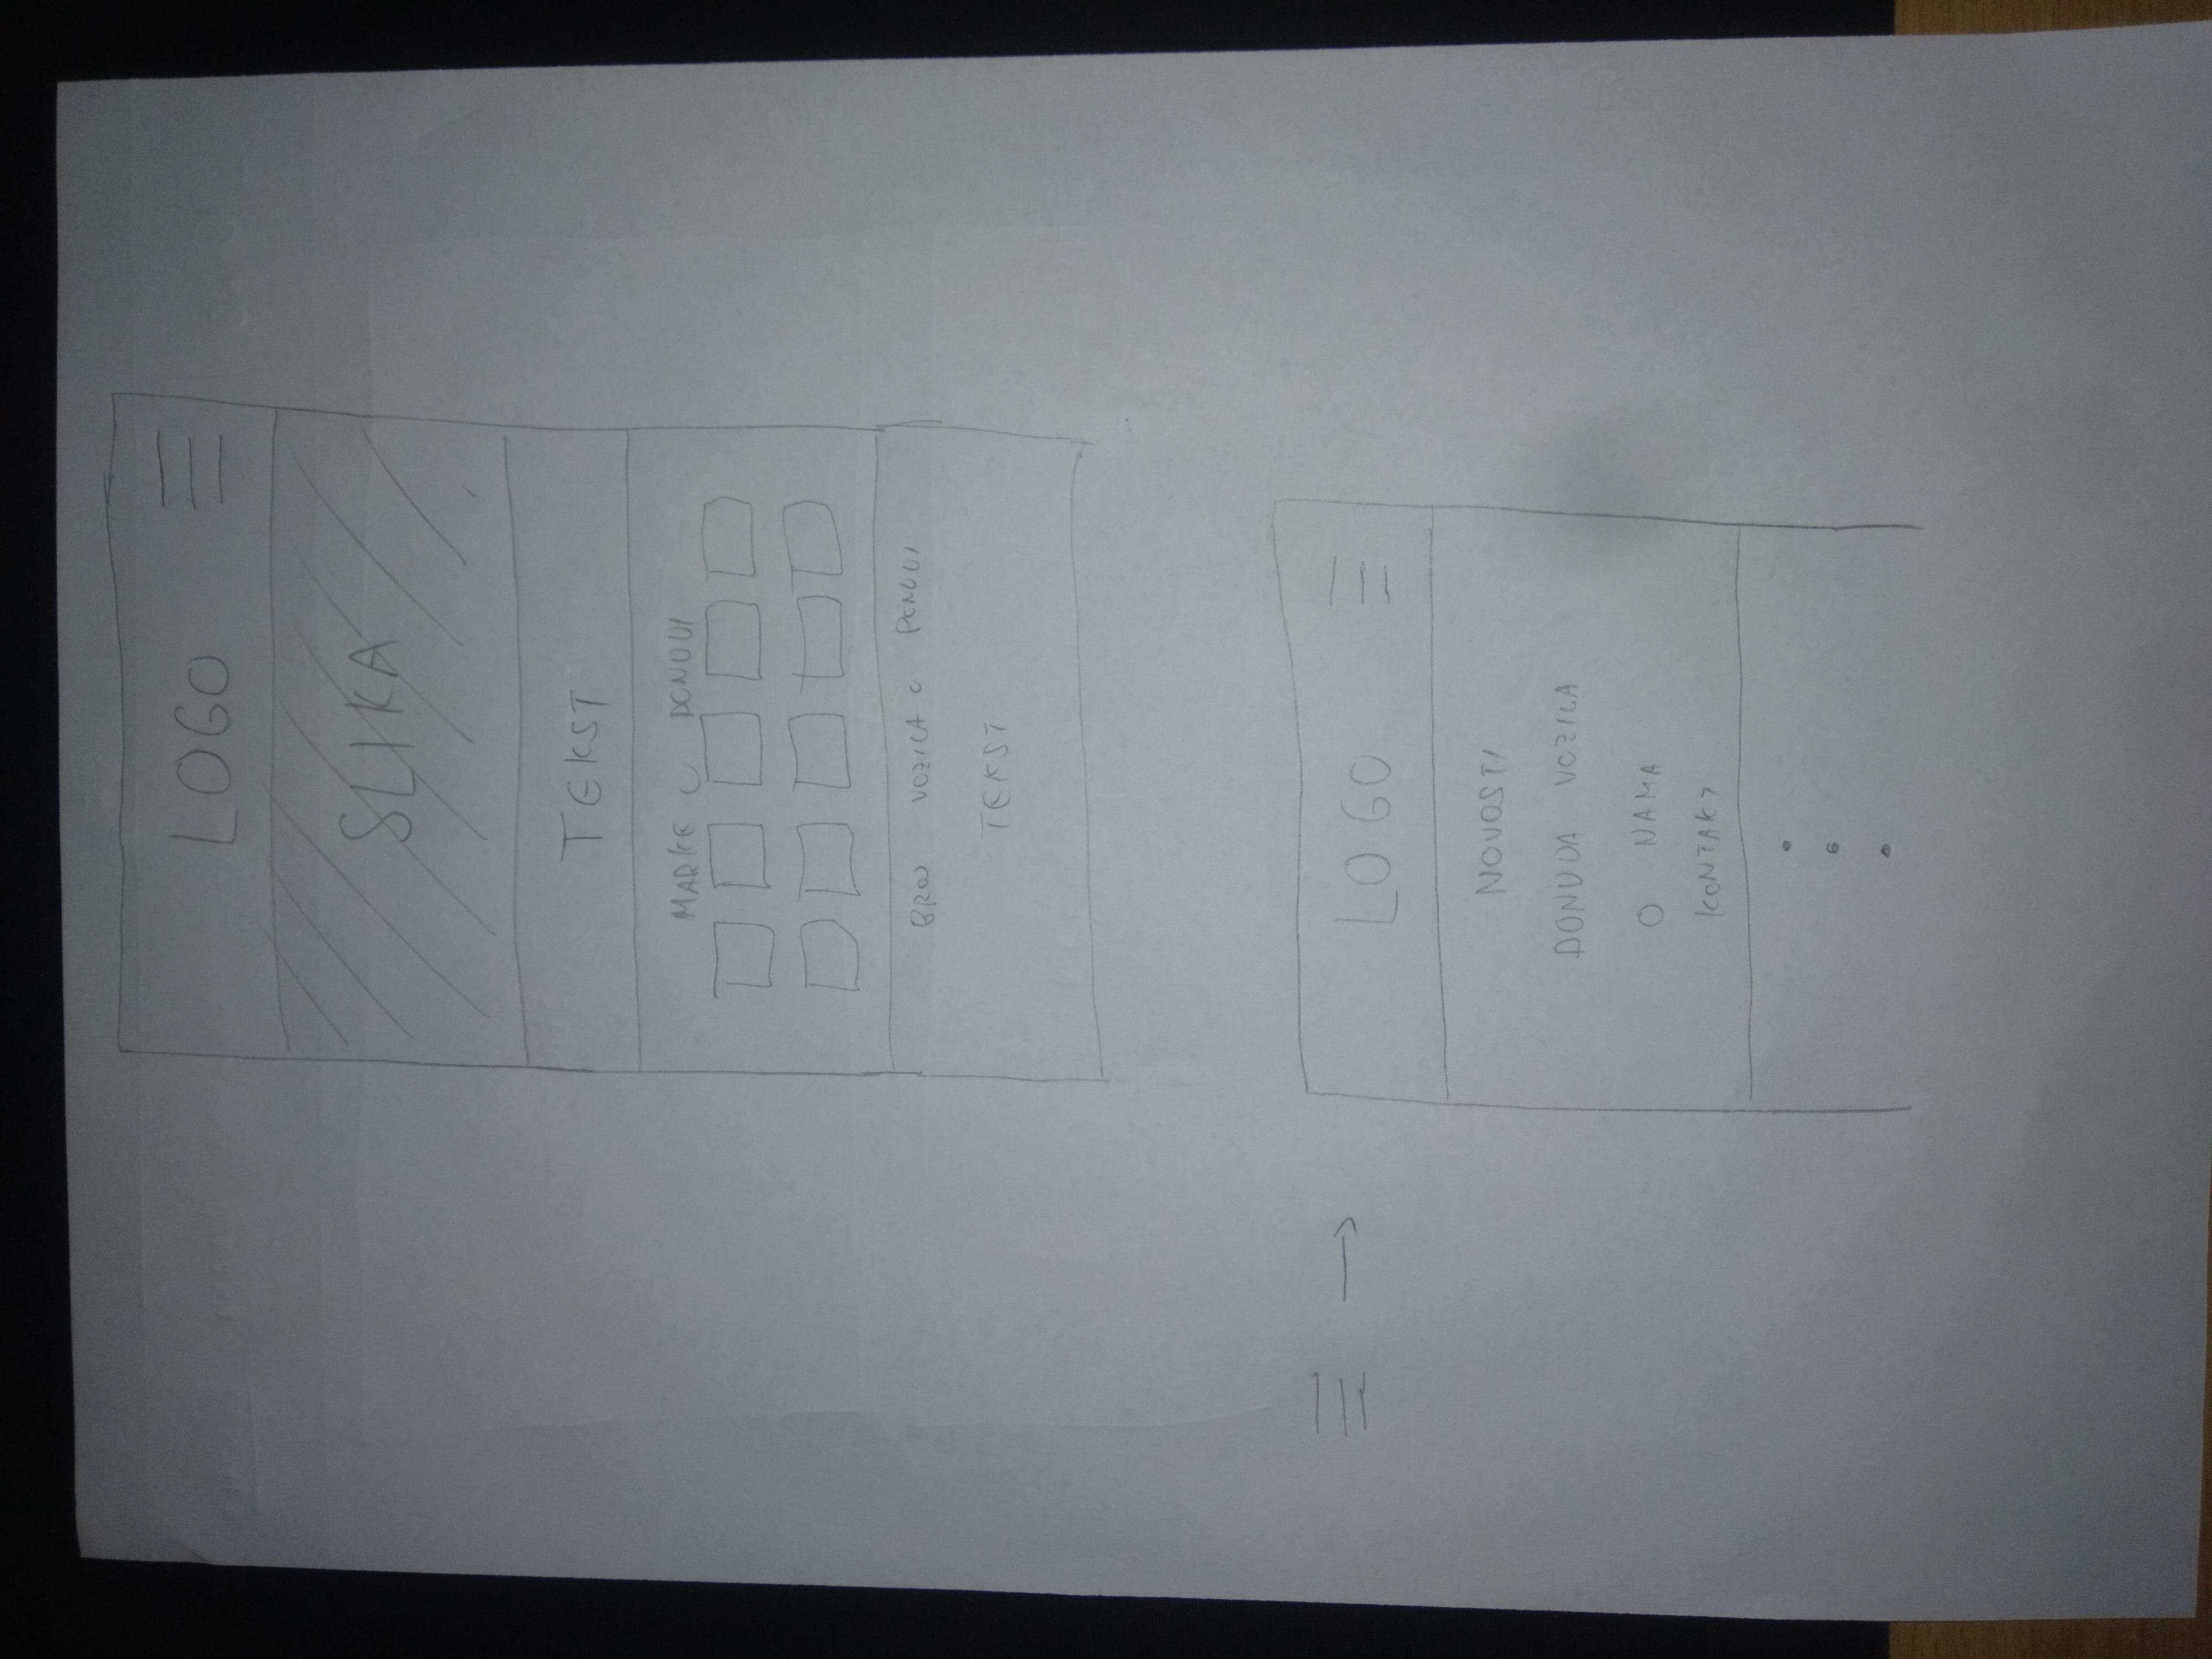 LOGO
SLIKA
TEKST
MARKE U PONUDI
BROJ VOZILA U PONUDI
TEKST
LOGO
NOVOSTI
PONUDA VOZILA
O NAMA
KONTAKT